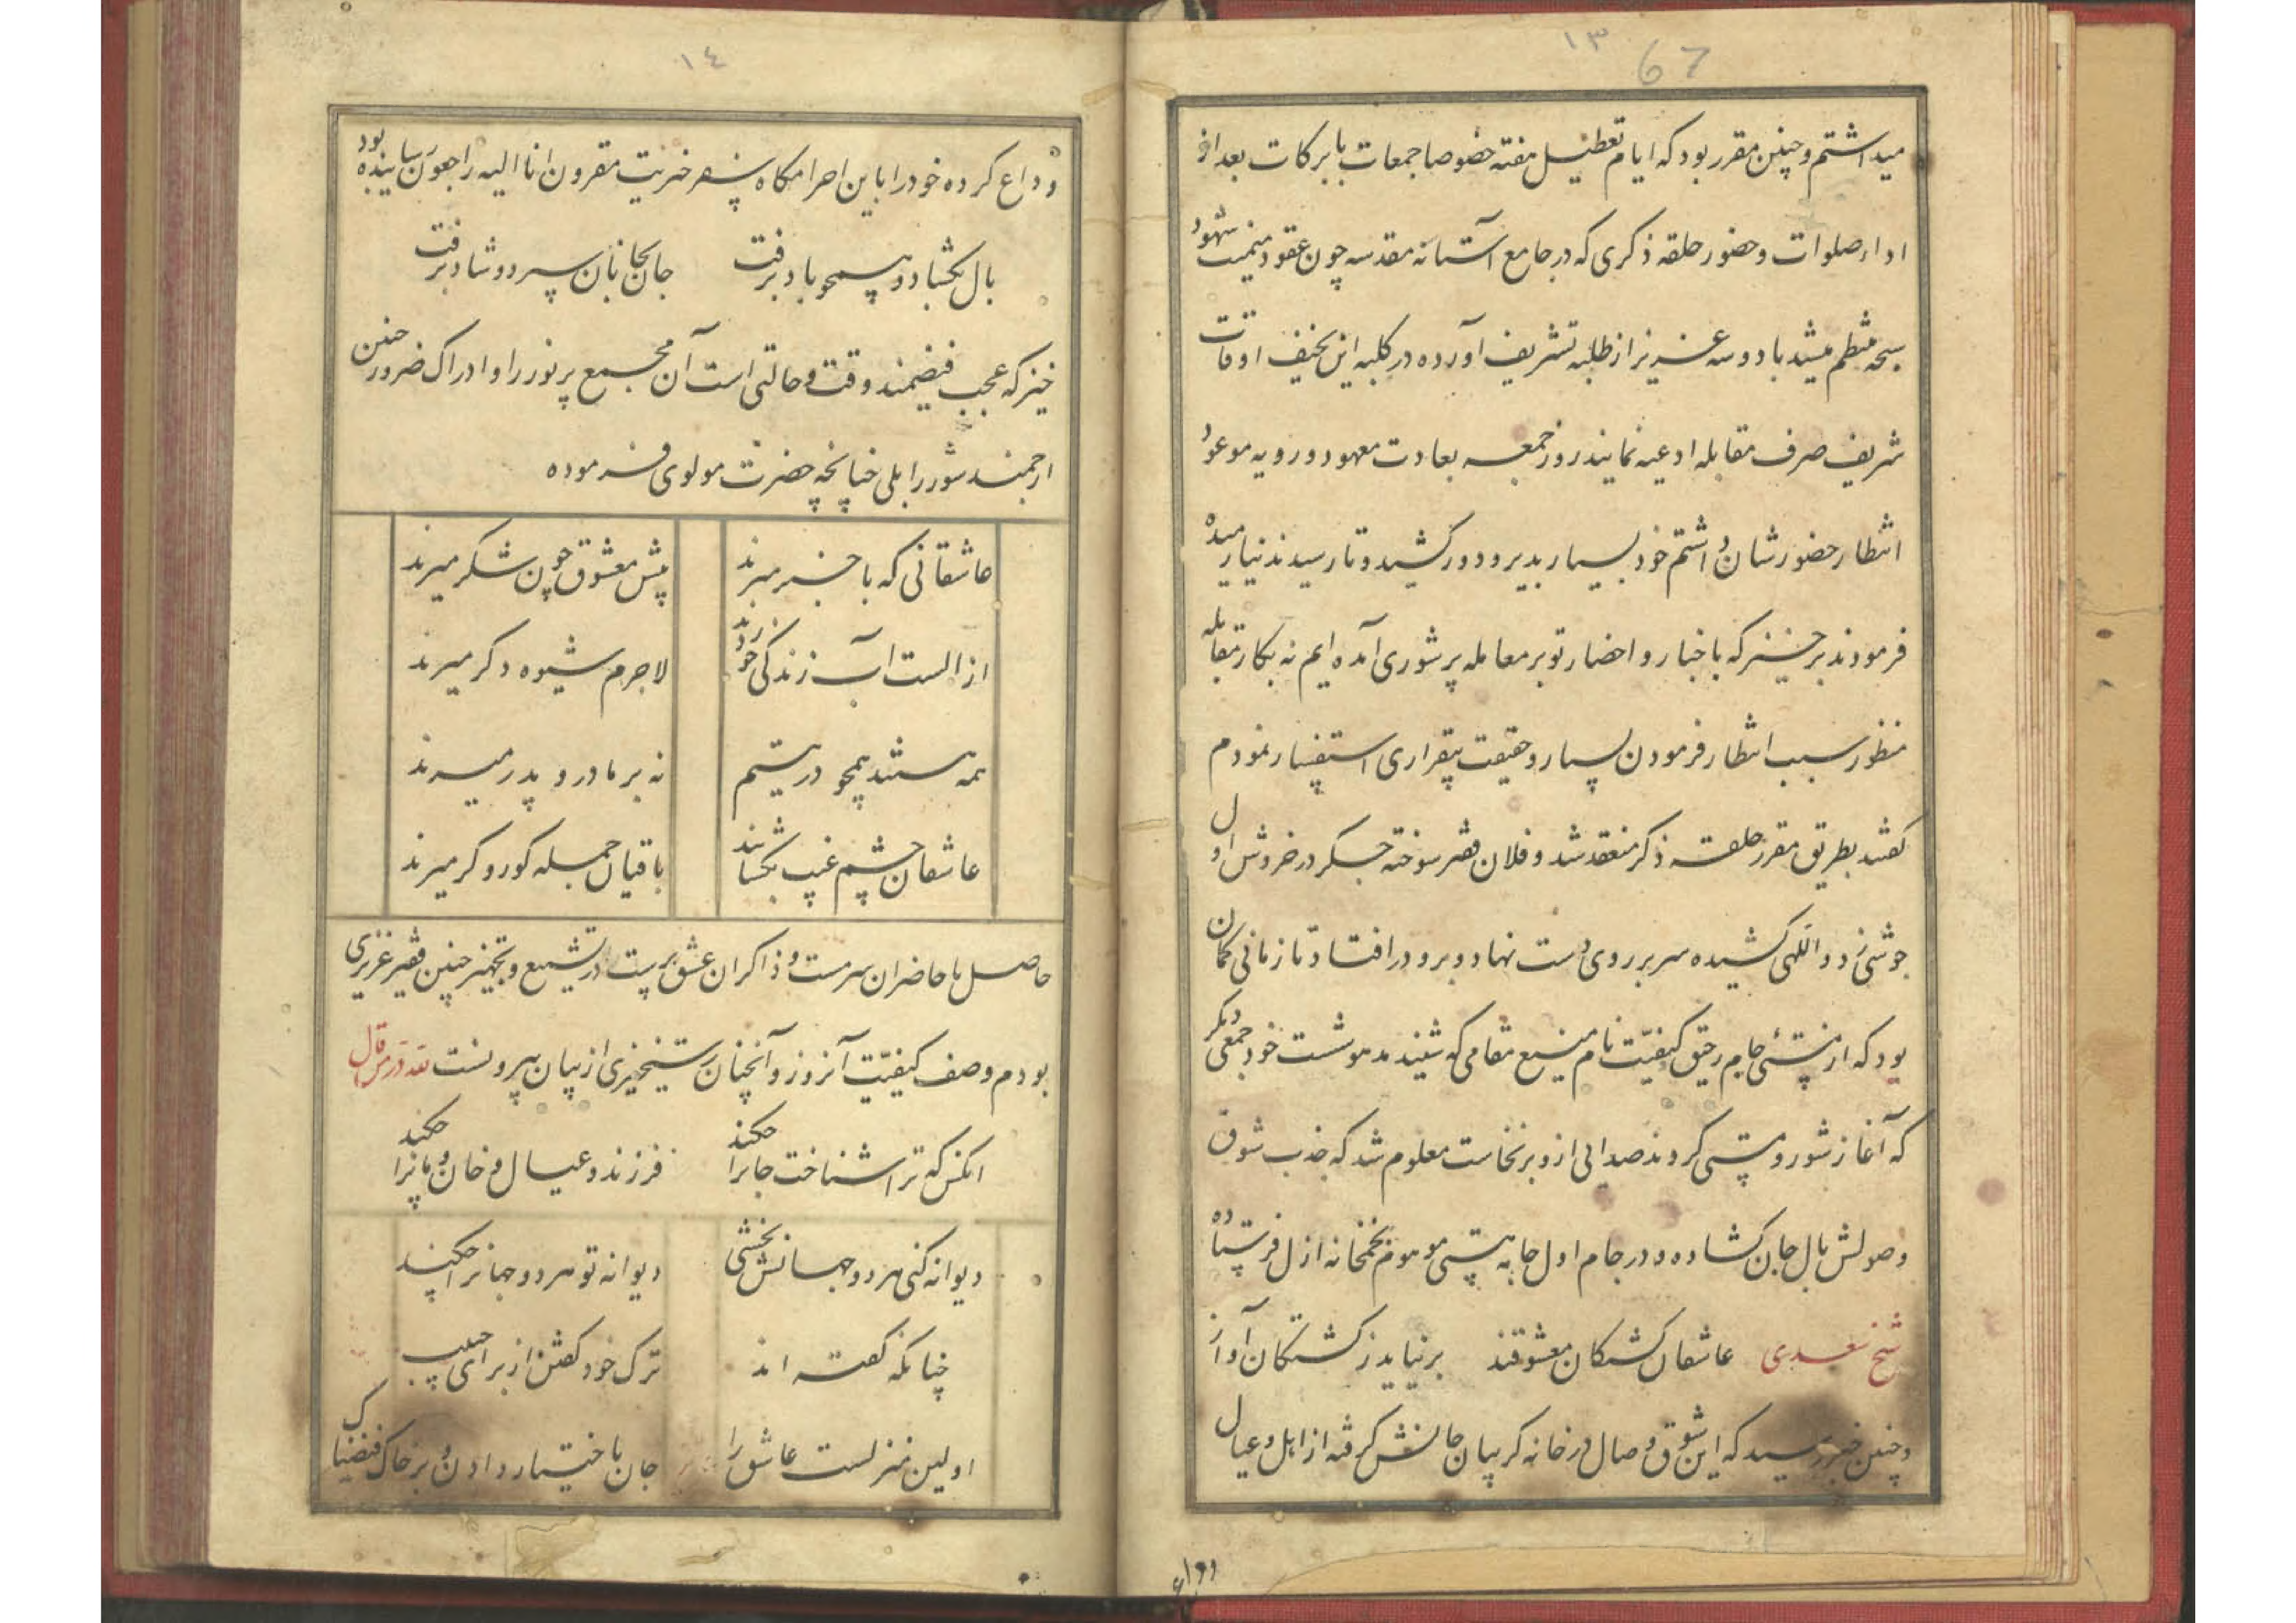 ١٣
67
میداشتم و چنین مقرر بود که ایام تعطیل هفته خصوصا جمعات با برکات بعد از
اداء صلوات و حضور حلقه ذکری که در جامع آستانه مقدسه چون عقود شهود
سبحه منتظم میشد با دو سه عزیز از طلبه تشریف آورده در کلبه این نحیف اوقات
شریف صرف مقابله ادعیه نمایند روز جمعه بعادت معهود و رویه موعود
انتظار حضور شان داشتم خود بسیار بدیر و دور کشید و تا رسیدند نیارمیده
فرمودند برخیز که باخبار و احضار تو بر معامله پر شوری آمده ایم نه بکار مقابله
منظور سبب انتظار فرمودن بسیار و حقیقت بیقراری استفسار نمودم
گفتند بطریق مقرر حلقه ذکر منعقد شد و فلان فقیر سوخته جگر در خروش اول
جوشی زد و اللهی کشیده سر بر روی دست نهاد و برو در افتاد تا زمانی گمان
بود که از منتشئ جام رحیق کیفیت نام منیع مقامی که شنید مدهوشست خود جمعی دیگر
که آغاز شور و مستی کردند صدایی ازو برنخاست معلوم شد که جذب شوق
وصولش بال جان گشاده و در جام اول جابه هستی موهوم بخمخانه ازل فرستاده
شیخ سعدی عاشقان کشتگان معشوقند برنیاید ز کشتگان آواز
و چنین خبر رسید که این شوق وصال در خانه گریبان جانش گرفته از اهل و عیال
وداع
١٤
وداع کرده خود را باین احرامگاه سفر خیریت مقرون انا الیه راجعون رسانیده بود
بال بگشاد و همچو باد برفت جان بجانان سپرد و شاد برفت
خیز که عجب فیضمند وقت و حالتی است آن مجمع پر نور را و ادراک ضرور چنین
ارجمند شور را بلی چنانچه حضرت مولوی فرموده
عاشقانی که با خبر میرند پیش معشوق چون شکر میرند
از الست آب زندگی خوردند لاجرم شیوه دگر میرند
همه هستند همچو در یتیم نه بر مادر و پدر میرند
عاشقان چشم غیب بگشایند باقیان جمله کور و کر میرند
حاصل با حاضران سرمست و ذاکران عشق پرست در تشییع و تجهیز چنین فقیر عزیزی
بودم وصف کیفیت آنروز و آنچنان رستخیزی از بیان بیرونست لله در من قال
انکس که ترا شناخت جانرا چکند فرزند و عیال و خان و مانرا چکند
دیوانه کنی هر دو جهانش بخشی دیوانه تو هر دو جهانرا چکند
چنانکه گفته اند ترک خود گفتن از برای حبیب
اولین منزلست عاشق را جان باختیار دادن و بر خاک